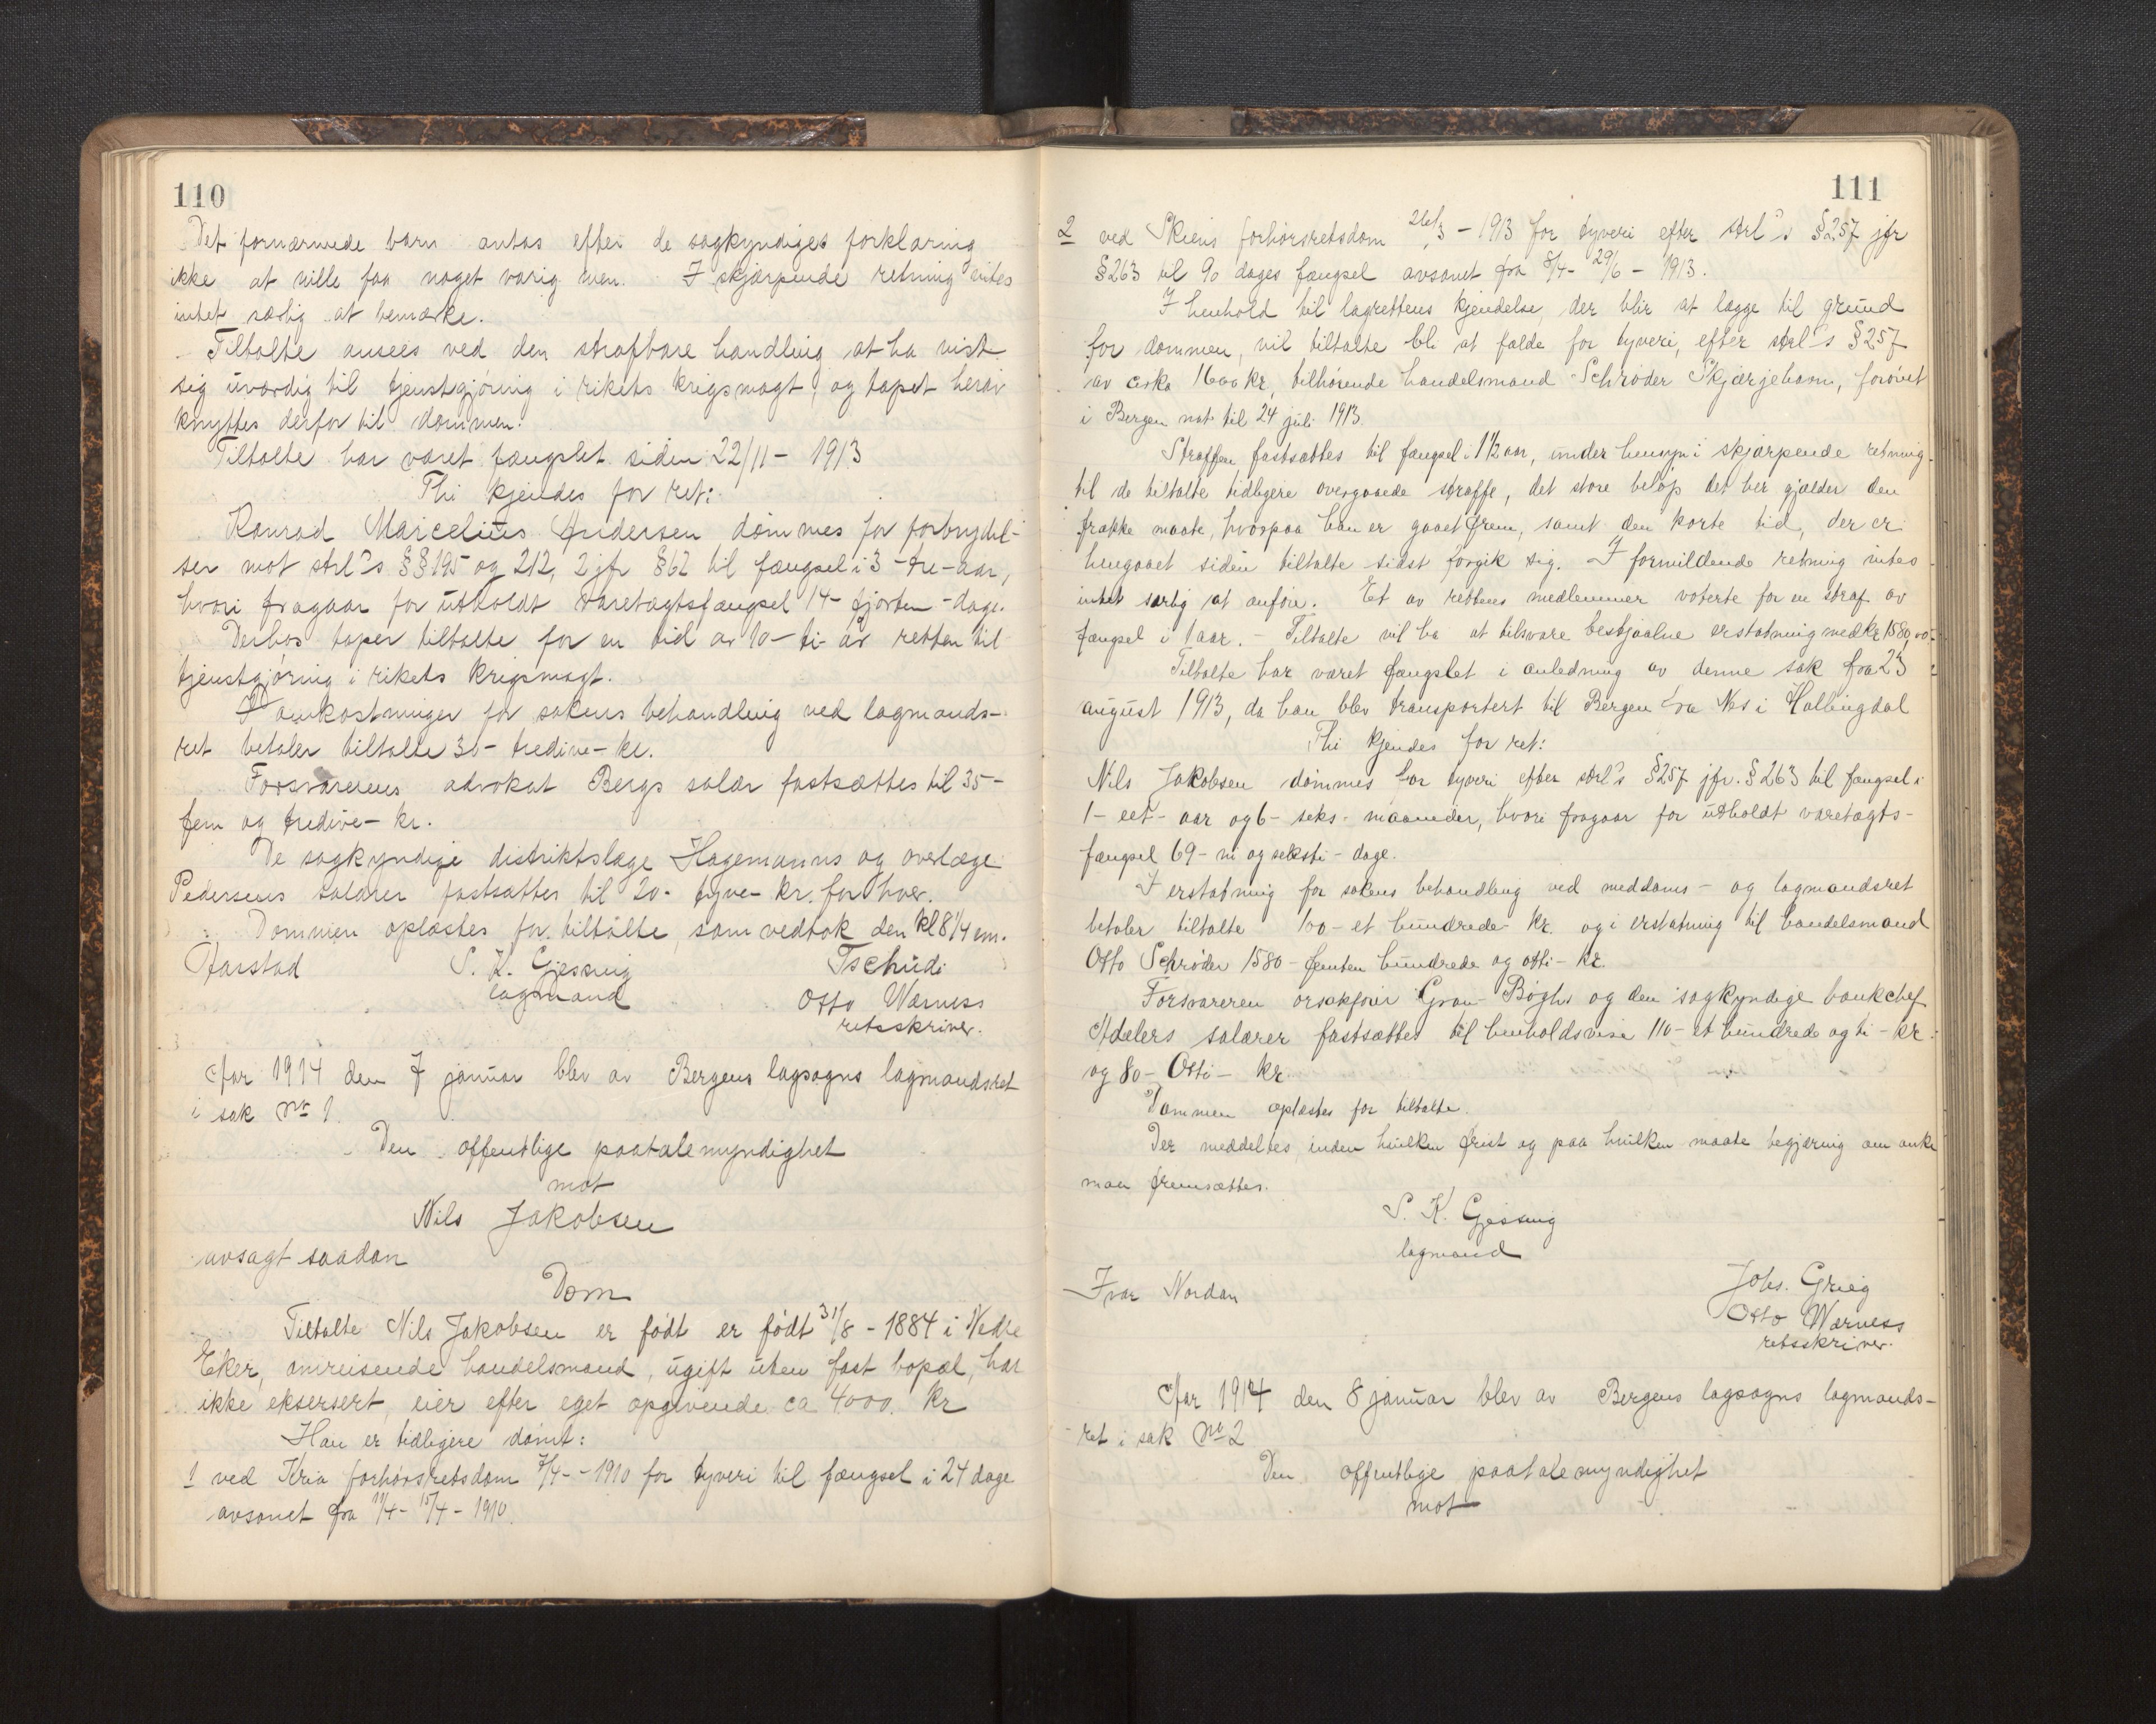 110
Det fornærmede barn antas efter de sagkyndiges forklaring
ikke at ville faa noget varig men. I skjærpende retning vites
intet særlig at bemærke.
Tiltalte ansees ved den strafbare handling at ha vist
sig uværdig til tjenstgjøring i rikets krigsmagt, og tapet herav
knyttes derfor til dommen.
Tiltalte har været fængslet siden 22/11 - 1913
Thi kjendes for ret:
Konrad Marcelius Andersen dømmes for forbrydel-
ser mot strl's §§ 195 og 212, 2 jfr § 62 til fængsel i 3 - tre - aar,
hvori fragaar for utholdt varetægtsfængsel 14 - fjorten - dage.
Derhos taper tiltalte for en tid av 10 - ti - år retten til
tjenstgjøring i rikets krigsmagt.
I omkostninger for sakens behandling ved lagmands-
ret betaler tiltalte 30 - tredive - kr.
Forsvarerens advokat Bergs salær fastsættes til 35 -
fem og tredive - kr.
De sagkyndige distriktslæge Hagemanns og overlæge
Pedersens salærer fastsættes til 20 - tyve - kr. for hver.
Dommen oplæstes for tiltalte, som vedtok den kl 8 1/4 em.
Farstad S. K. Gjessing Tschudi
lagmand Otto Wærness
retsskriver.
Aar 1914 den 7 januar blev av Bergens lagsogns lagmandsret
i sak No 1
Den offentlige paatalemyndighet
mot
Nils Jakobsen
avsagt saadan
Dom
Tiltalte Nils Jakobsen er født er født 31/8 - 1884 i Nedre
Eker, omreisende handelsmand, ugift uten fast bopæl, har
ikke eksersert, eier efter eget opgivende ca 4000. kr
Han er tidligere dømt:
1 ved Kria forhørsretsdom 7/4 - 1910 for tyveri til fængsel i 24 dage
avsonet fra 11/4 - 15/4 - 1910.
111
2 ved Skiens forhørsretsdom 26/3 - 1913 for tyveri efter strl's § 257 jfr
§ 263 til 90 dages fængsel avsonet fra 8/4 - 29/6 - 1913.
I henhold til lagrettens kjendelse, der blir at lægge til grund
for dommen, vil tiltalte bli at fælde for tyveri, efter strl's § 257
av cirka 1600 kr, tilhørende handelsmand Schrøder Skjærjehavn, forøvet
i Bergen nat til 24 juli 1913.
Straffen fastsættes til fængsel i 1 1/2 aar, under hensyn i skjærpende retning
til de tiltalte tidligere overgaaede straffe, det store beløp det her gjælder den
frække maate, hvorpaa han er gaaet frem, samt den korte tid, der er
hengaaet siden tiltalte sidst forgik sig. I formildende retning vites
intet særlig at anføre. Et av rettens medlemmer voterte for en straf av
fængsel i 1 aar. - Tiltalte vil ha at tilsvare bestjaalne erstatning med kr 1580,00
Tiltalte har været fængslet i anledning av denne sak fra 23
august 1913, da han blev transportert til Bergen fra Nes i Hallingdal
Thi kjendes for ret:
Nils Jakobsen dømmes for tyveri efter strl's § 257 jfr. § 263 til fængsel i
1 - eet - aar og 6 - seks - maaneder, hvori fragaar for utholdt varetægts-
fængsel 69 - ni og seksti - dage.
I erstatning for sakens behandling ved meddoms - og lagmandsret
betaler tiltalte 100 - et hundrede - kr. og i erstatning til handelsmand
Otto Schrøder 1580 - femten hundrede og otti - kr.
Forsvareren orsakfører Gran Bøghs og den sagkyndige bankchef
Adelers salærer fastsættes til henholdsvise 110 - et hundrede og ti - kr
og 80 - Otti - kr.
Dommen oplæstes for tiltalte.
Der meddeltes, inden hvilken frist og paa hvilken maate begjæring om anke
maa fremsættes.
S. K. Gjessing
lagmand
Ivar Nordan Johs. Grieg
Otto Wærness
retsskriver.
Aar 1914 den 8 januar blev av Bergens lagsogns lagmands-
ret i sak No 2
Den offentlige paatalemyndighet
mot